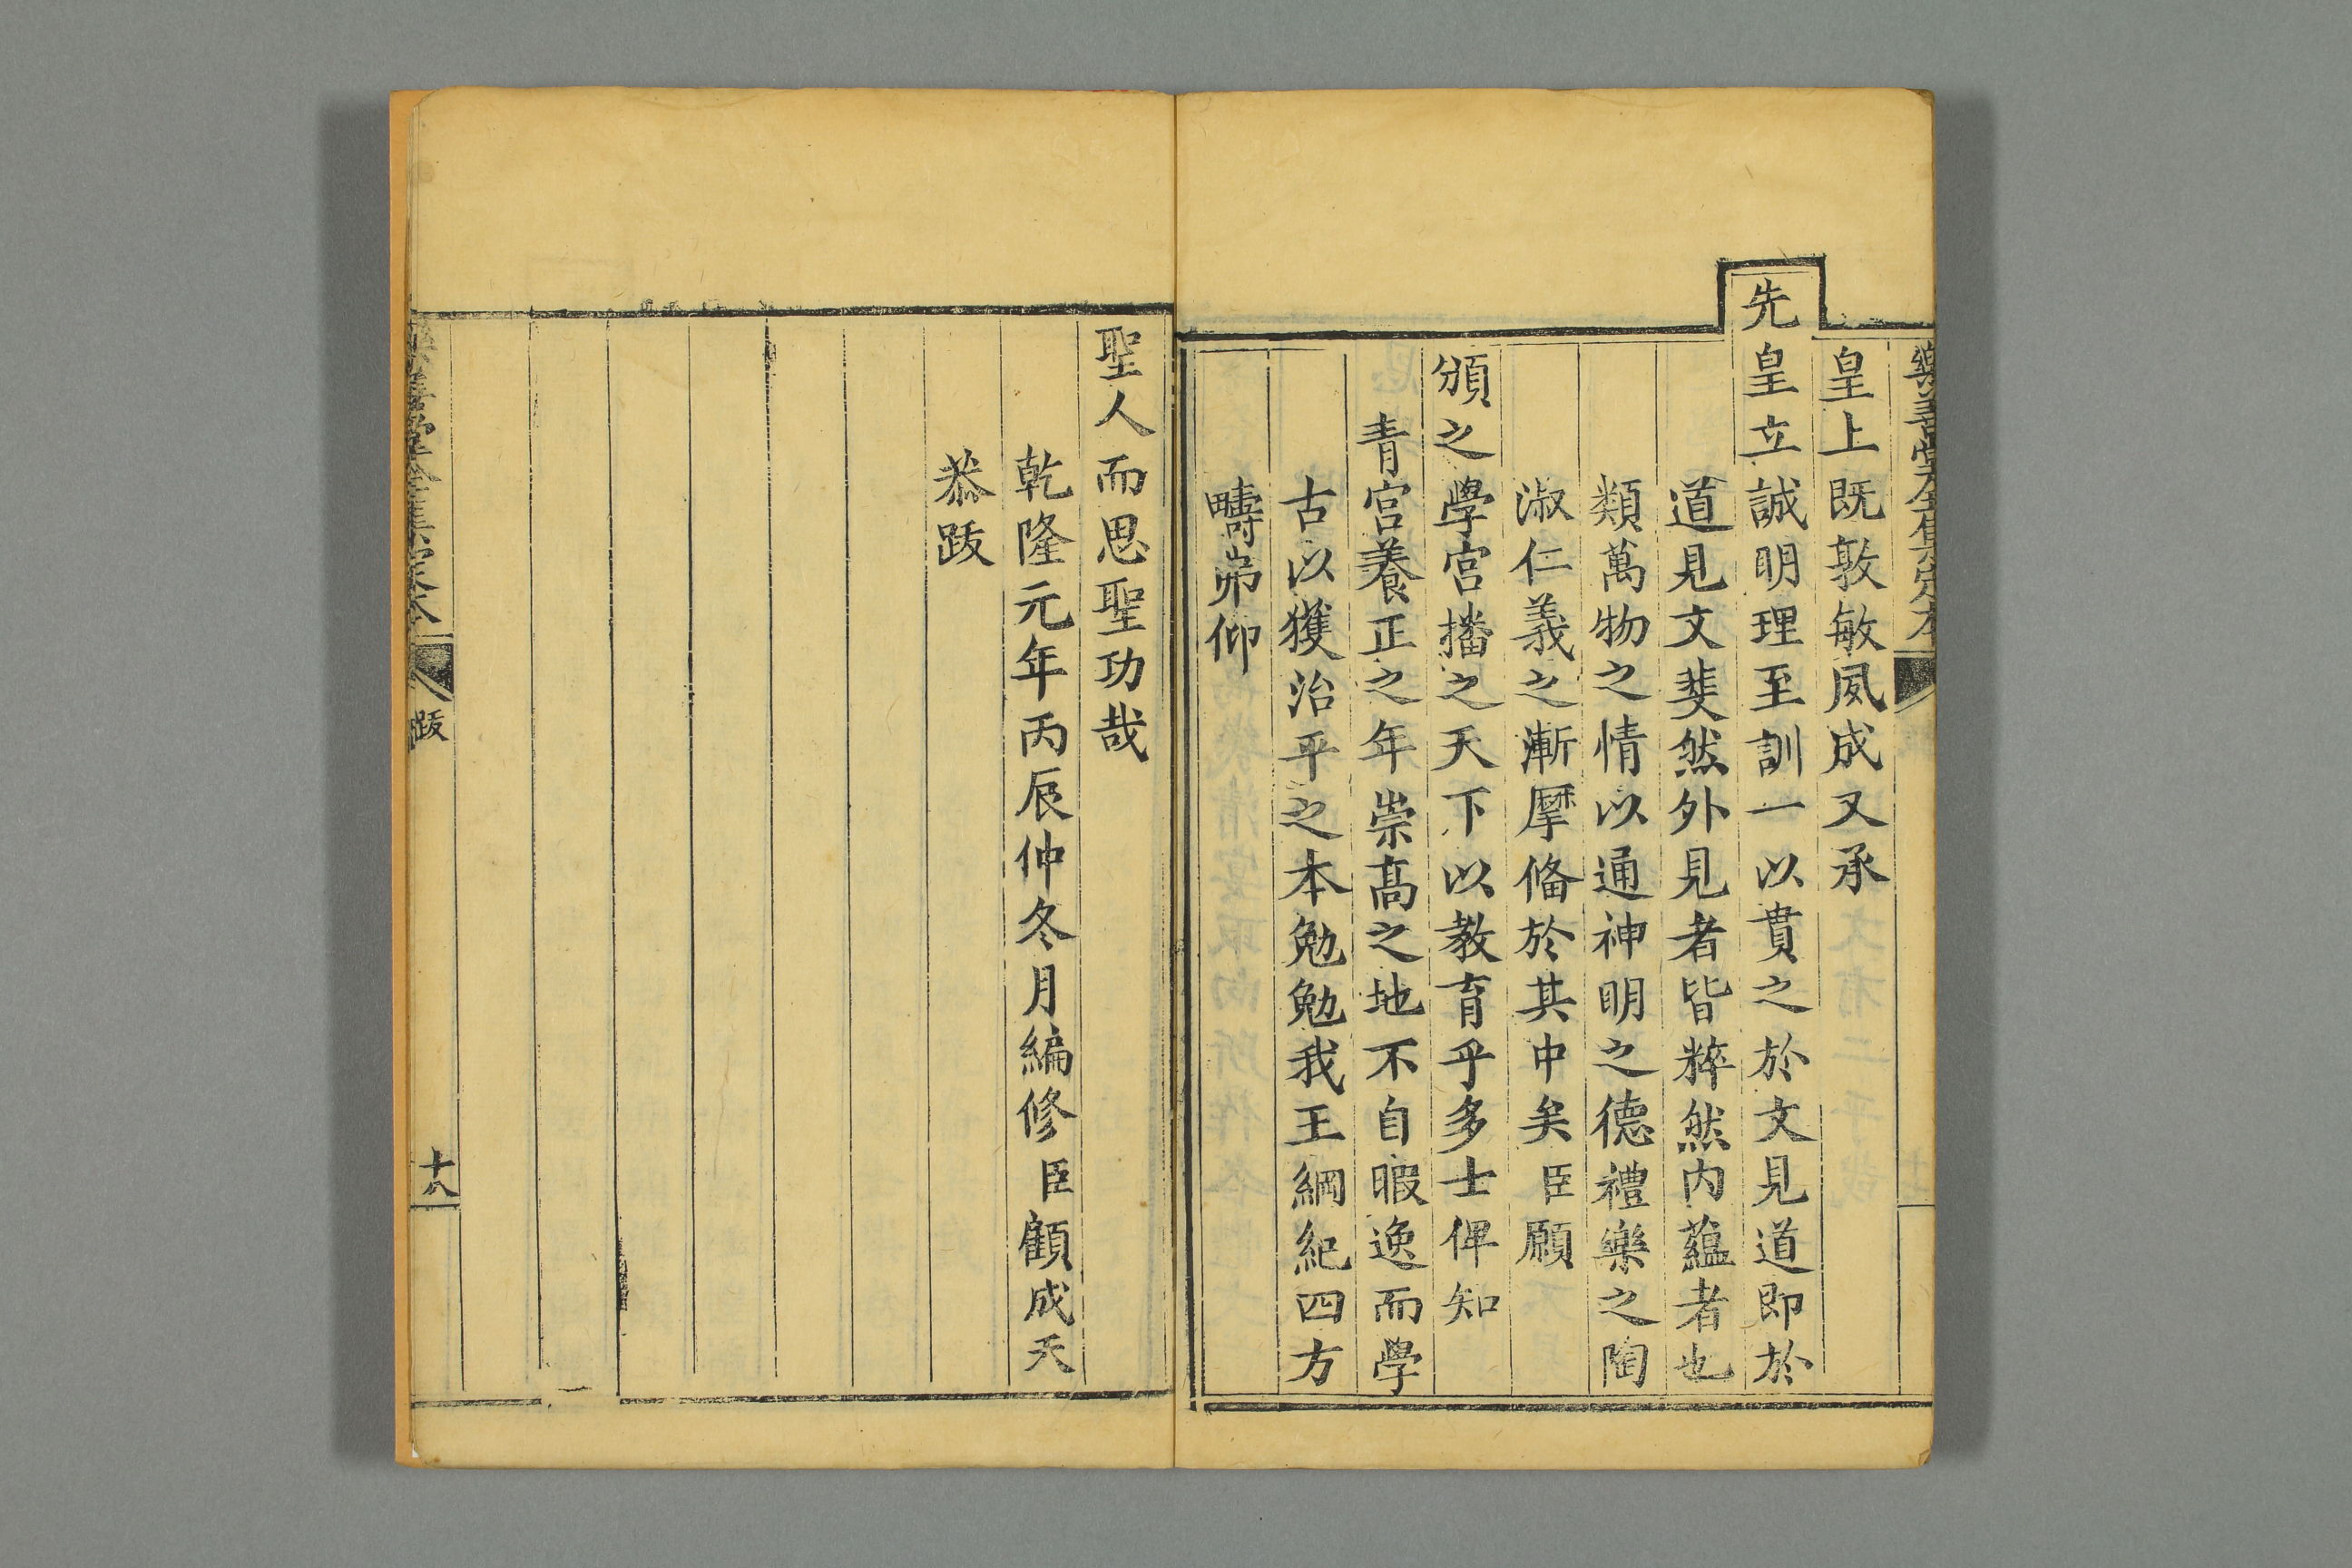 樂善堂全集定本
皇上既敦敏夙成又承
先皇立誠明理至訓一以貫之於文見道即於
道見文斐然外見者皆粹然内蘊者也
類萬物之情以通神明之德禮樂之陶
淑仁義之漸摩備於其中矣臣願
頒之學宮播之天下以教育乎多士俾知
青宮養正之年崇高之地不自暇逸而學
古以獲治平之本勉勉我王綱紀四方
疇弗仰
聖人而思聖功哉
乾隆元年丙辰仲冬月編修臣顧成天
恭跋
跋
十八